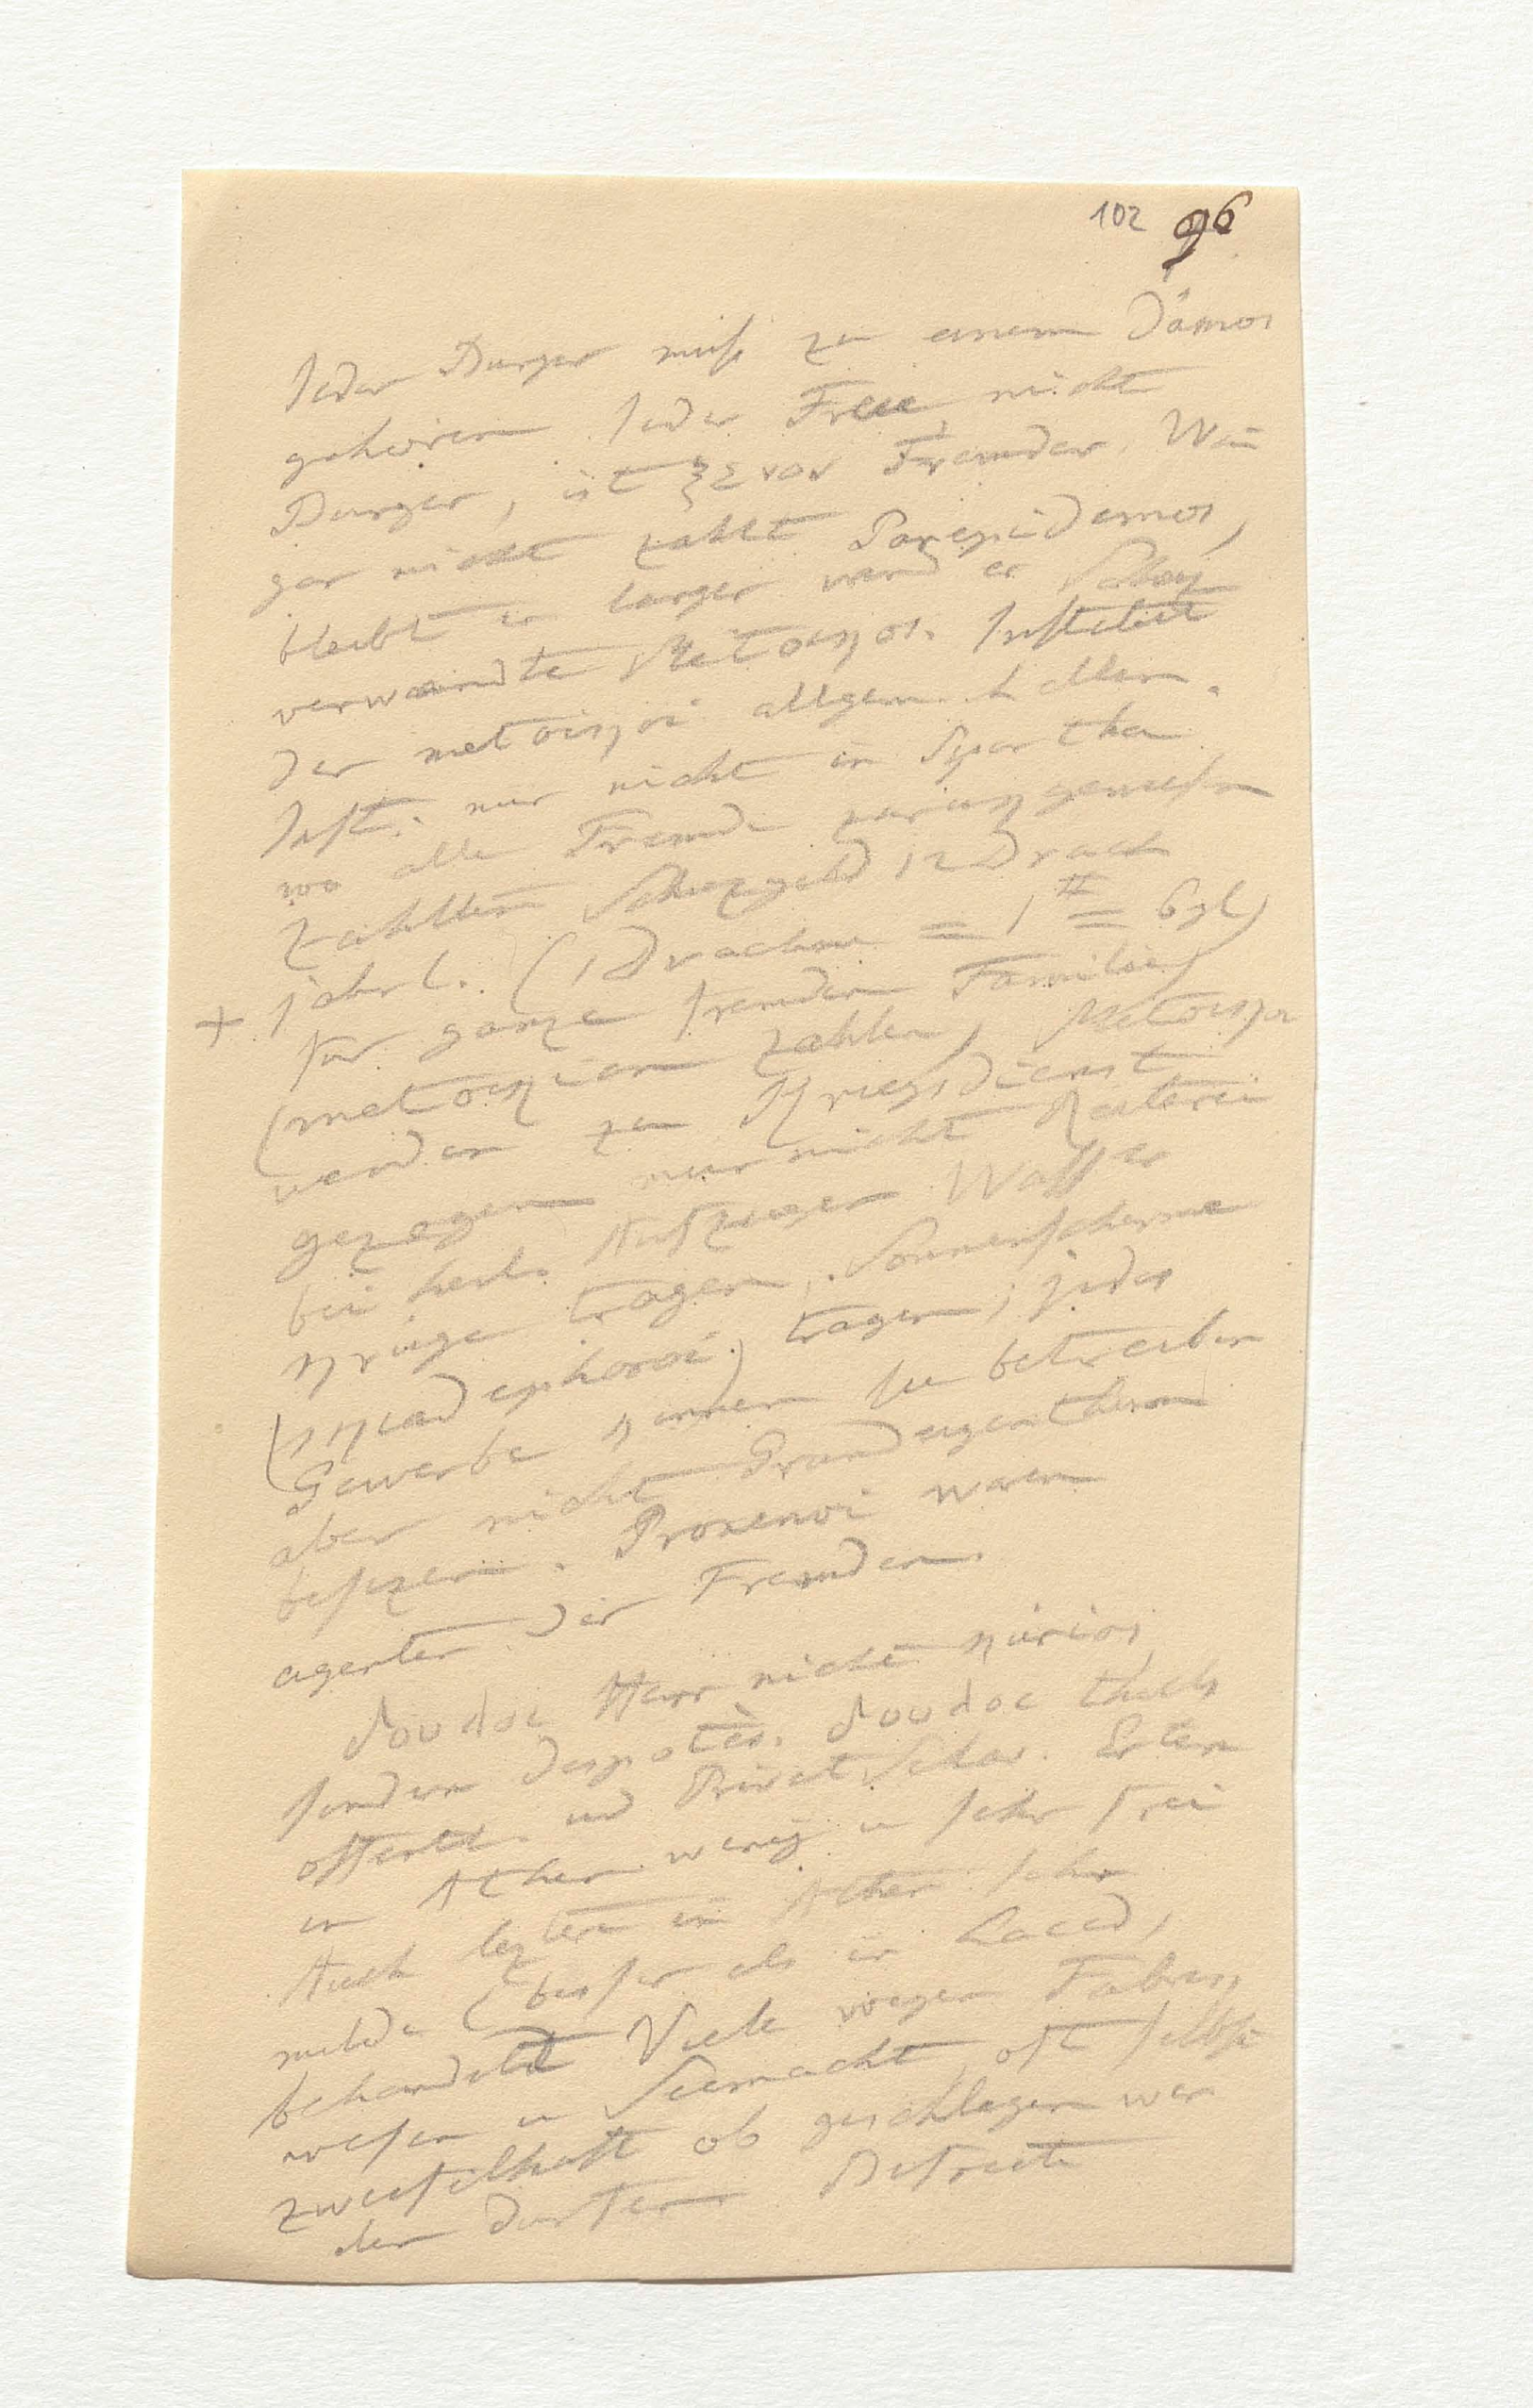 102 96
Jeder Burger muß zu einem Dämos
gehoren. Jeder Freie, nicht
Burger, ist ξενον Fremder. Wen
gar nicht zahlt Parepidemos,
bleibt er langer wird er Schuz
verwandte Metoikos. Institut
der metoikoi allgem. hellen.
Inst. nur nicht in Spartha
wo alle Fremde zurukgewiesen
Zahlten Schuzgeld 12 Drach
+ jahrl. (1 Drachme = 1 # = 6 gl)
fur ganze fremden Familie)
(metoikion zahlen, Metoikoi
werden zu Kriegsdienst
gezogen nur nicht Reiterei
bei heil. Aufzugen Wasser
kruge tragen, Sonnenscherme
(skiadephoroi) tragen; jedes
Gewerbe konnen sie betreiben
aber nicht Grundeigenthum
besizen. Proxenoi waren
agenten der Fremden.
δουλος Herr nicht kurios
sondern despotes. δουλος theils
offentl. und Privat Sclav. Erstere
in Athen wenig u sehr frei
Auch leztere in Athen sehr
milde (besser als in Laced,
behandelt Viele wegen Fabrik
wesen u Seemacht oft selbst
zweifelhaft ob geschlagen wer
den durfen Befreite